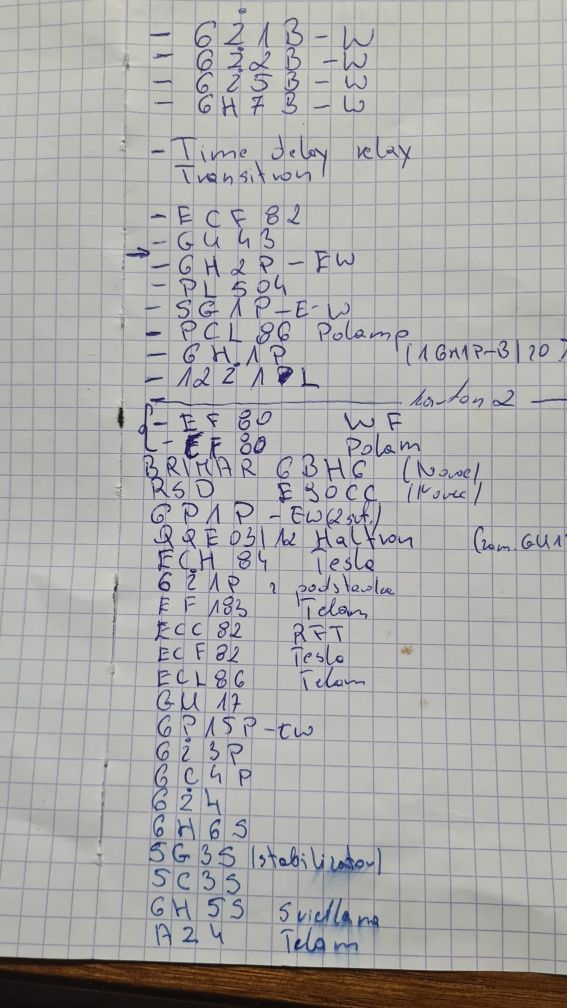 - 6Ż1B-W
- 6Ż2B-W
- 6Ż5B-W
- 6H7B-W
- Time delay relay
Transitron
- ECF 82
- GU 43
→ - 6H2P-EW
- PL 504
- SG1P-E-W
- PCL 86 Polamp
- 6H1P (16H1P-B/20)
- 12Ż1PL
karton 2
- EF 80 WF
- EF 80 Polam
BRIMAR 6BH6 (Nowe)
RSD E90CC (Nowe)
6P1P-EW (2szt.)
QQE 03/12 Haltron (zam. GU17
ECH 84 Tesla
6Ż1P z podstawka
EF 183 Telam
ECC 82 RFT
ECF 82 Tesla
ECL 86 Telam
GU 17
6P15P-EW
6Ż3P
6C4P
6Ż4
6H6S
SG3S (stabilizator)
5C3S
6H5S Svietlana
AZ4 Telam